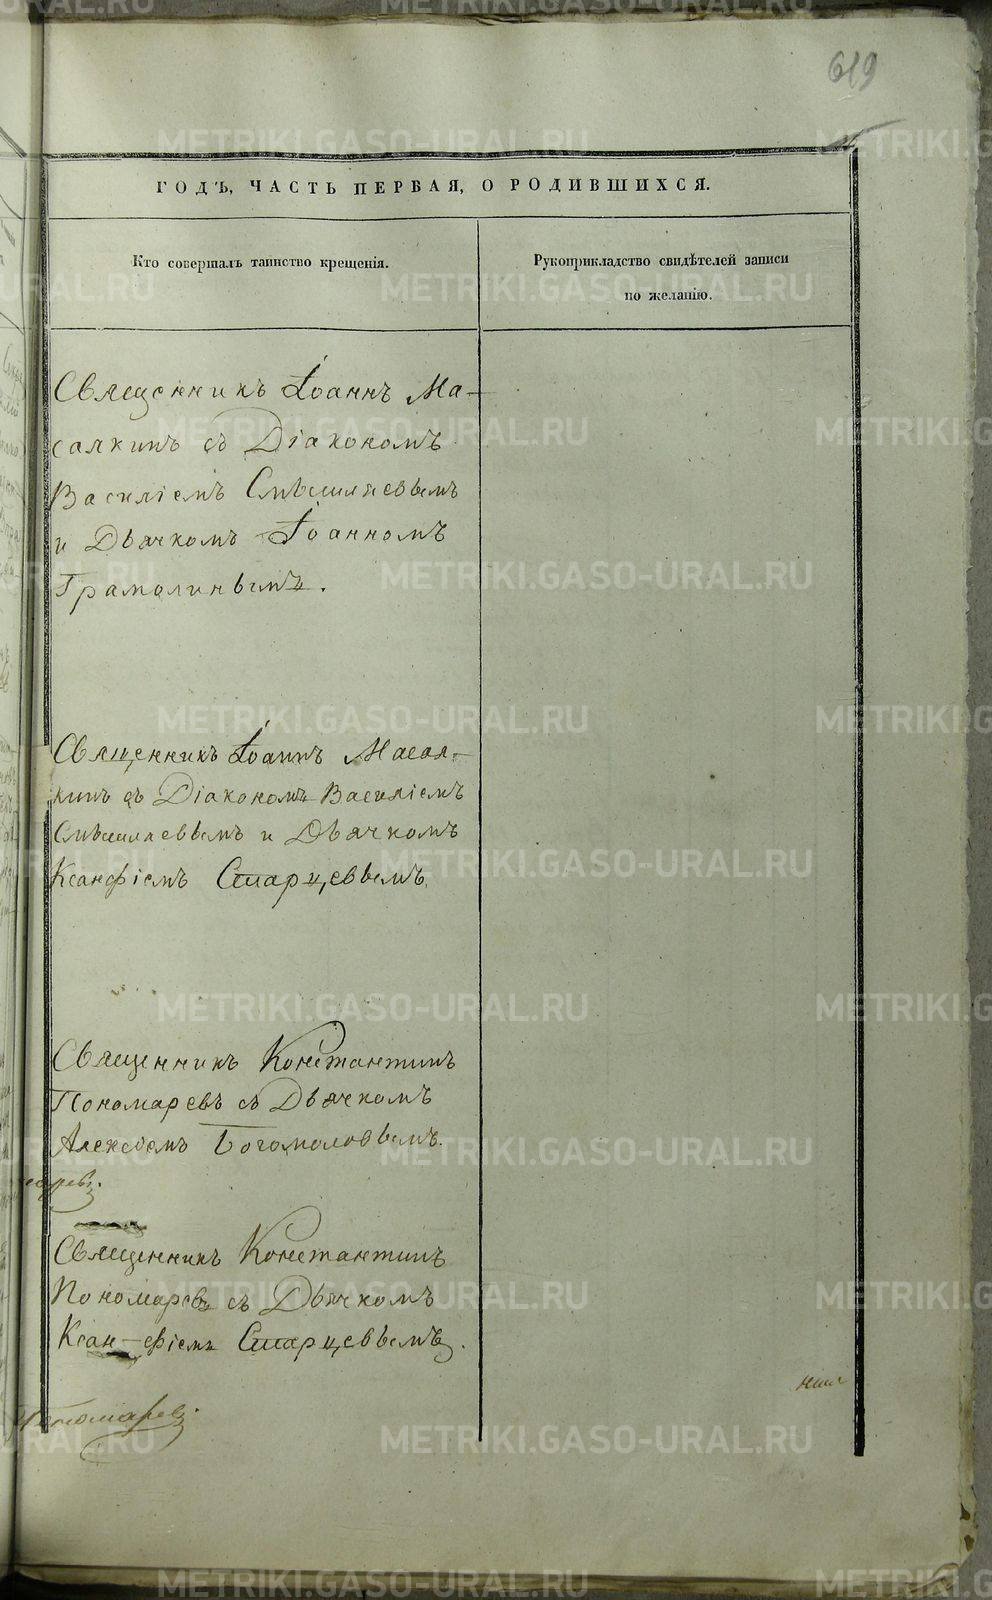 619
ГОДЪ, ЧАСТЬ ПЕРВАЯ, О РОДИВШИХСЯ.
Кто совершалъ таинство крещенія.
Рукоприкладство свидѣтелей записи
по желанію.
Священникъ Іоаннъ Ма-
салкинъ съ Діакономъ
Василіемъ Смышляевымъ
и Дьячкомъ Іоанномъ
Грамолинымъ.
Священникъ Іоаннъ Масал-
кинъ съ Діакономъ Василіемъ
Смышляевымъ и Дьячкомъ
Ксанфіемъ Старцевымъ.
Священникъ Константинъ
Пономаревъ съ Дьячкомъ
Алексѣемъ Богомоловымъ.
Священникъ Константинъ
Пономаревъ съ Дьячкомъ
Ксан-фіемъ Старцевымъ.
Пономаревъ.
METRIKI.GASO-URAL.RU